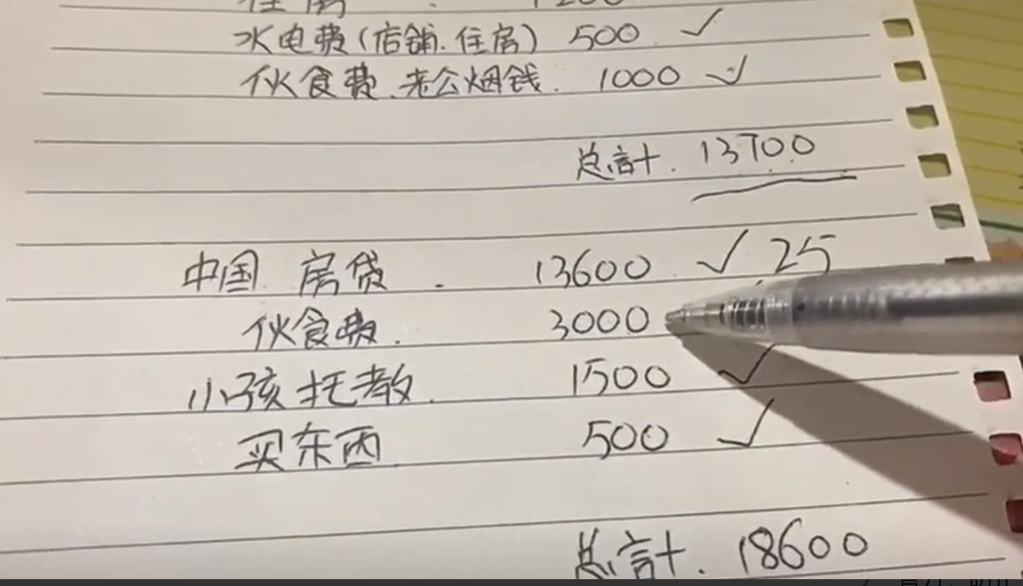 住房 1200
水电费(店铺.住房) 500 ✓
伙食费.老公烟钱. 1000 ✓
总计. 13700
中国 房贷. 13600 ✓ 25
伙食费. 3000
小孩托教. 1500 ✓
买东西 500 ✓
总计. 18600